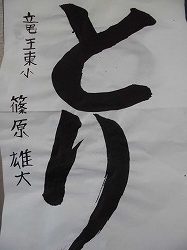 とり
竜王東小
篠原雄大